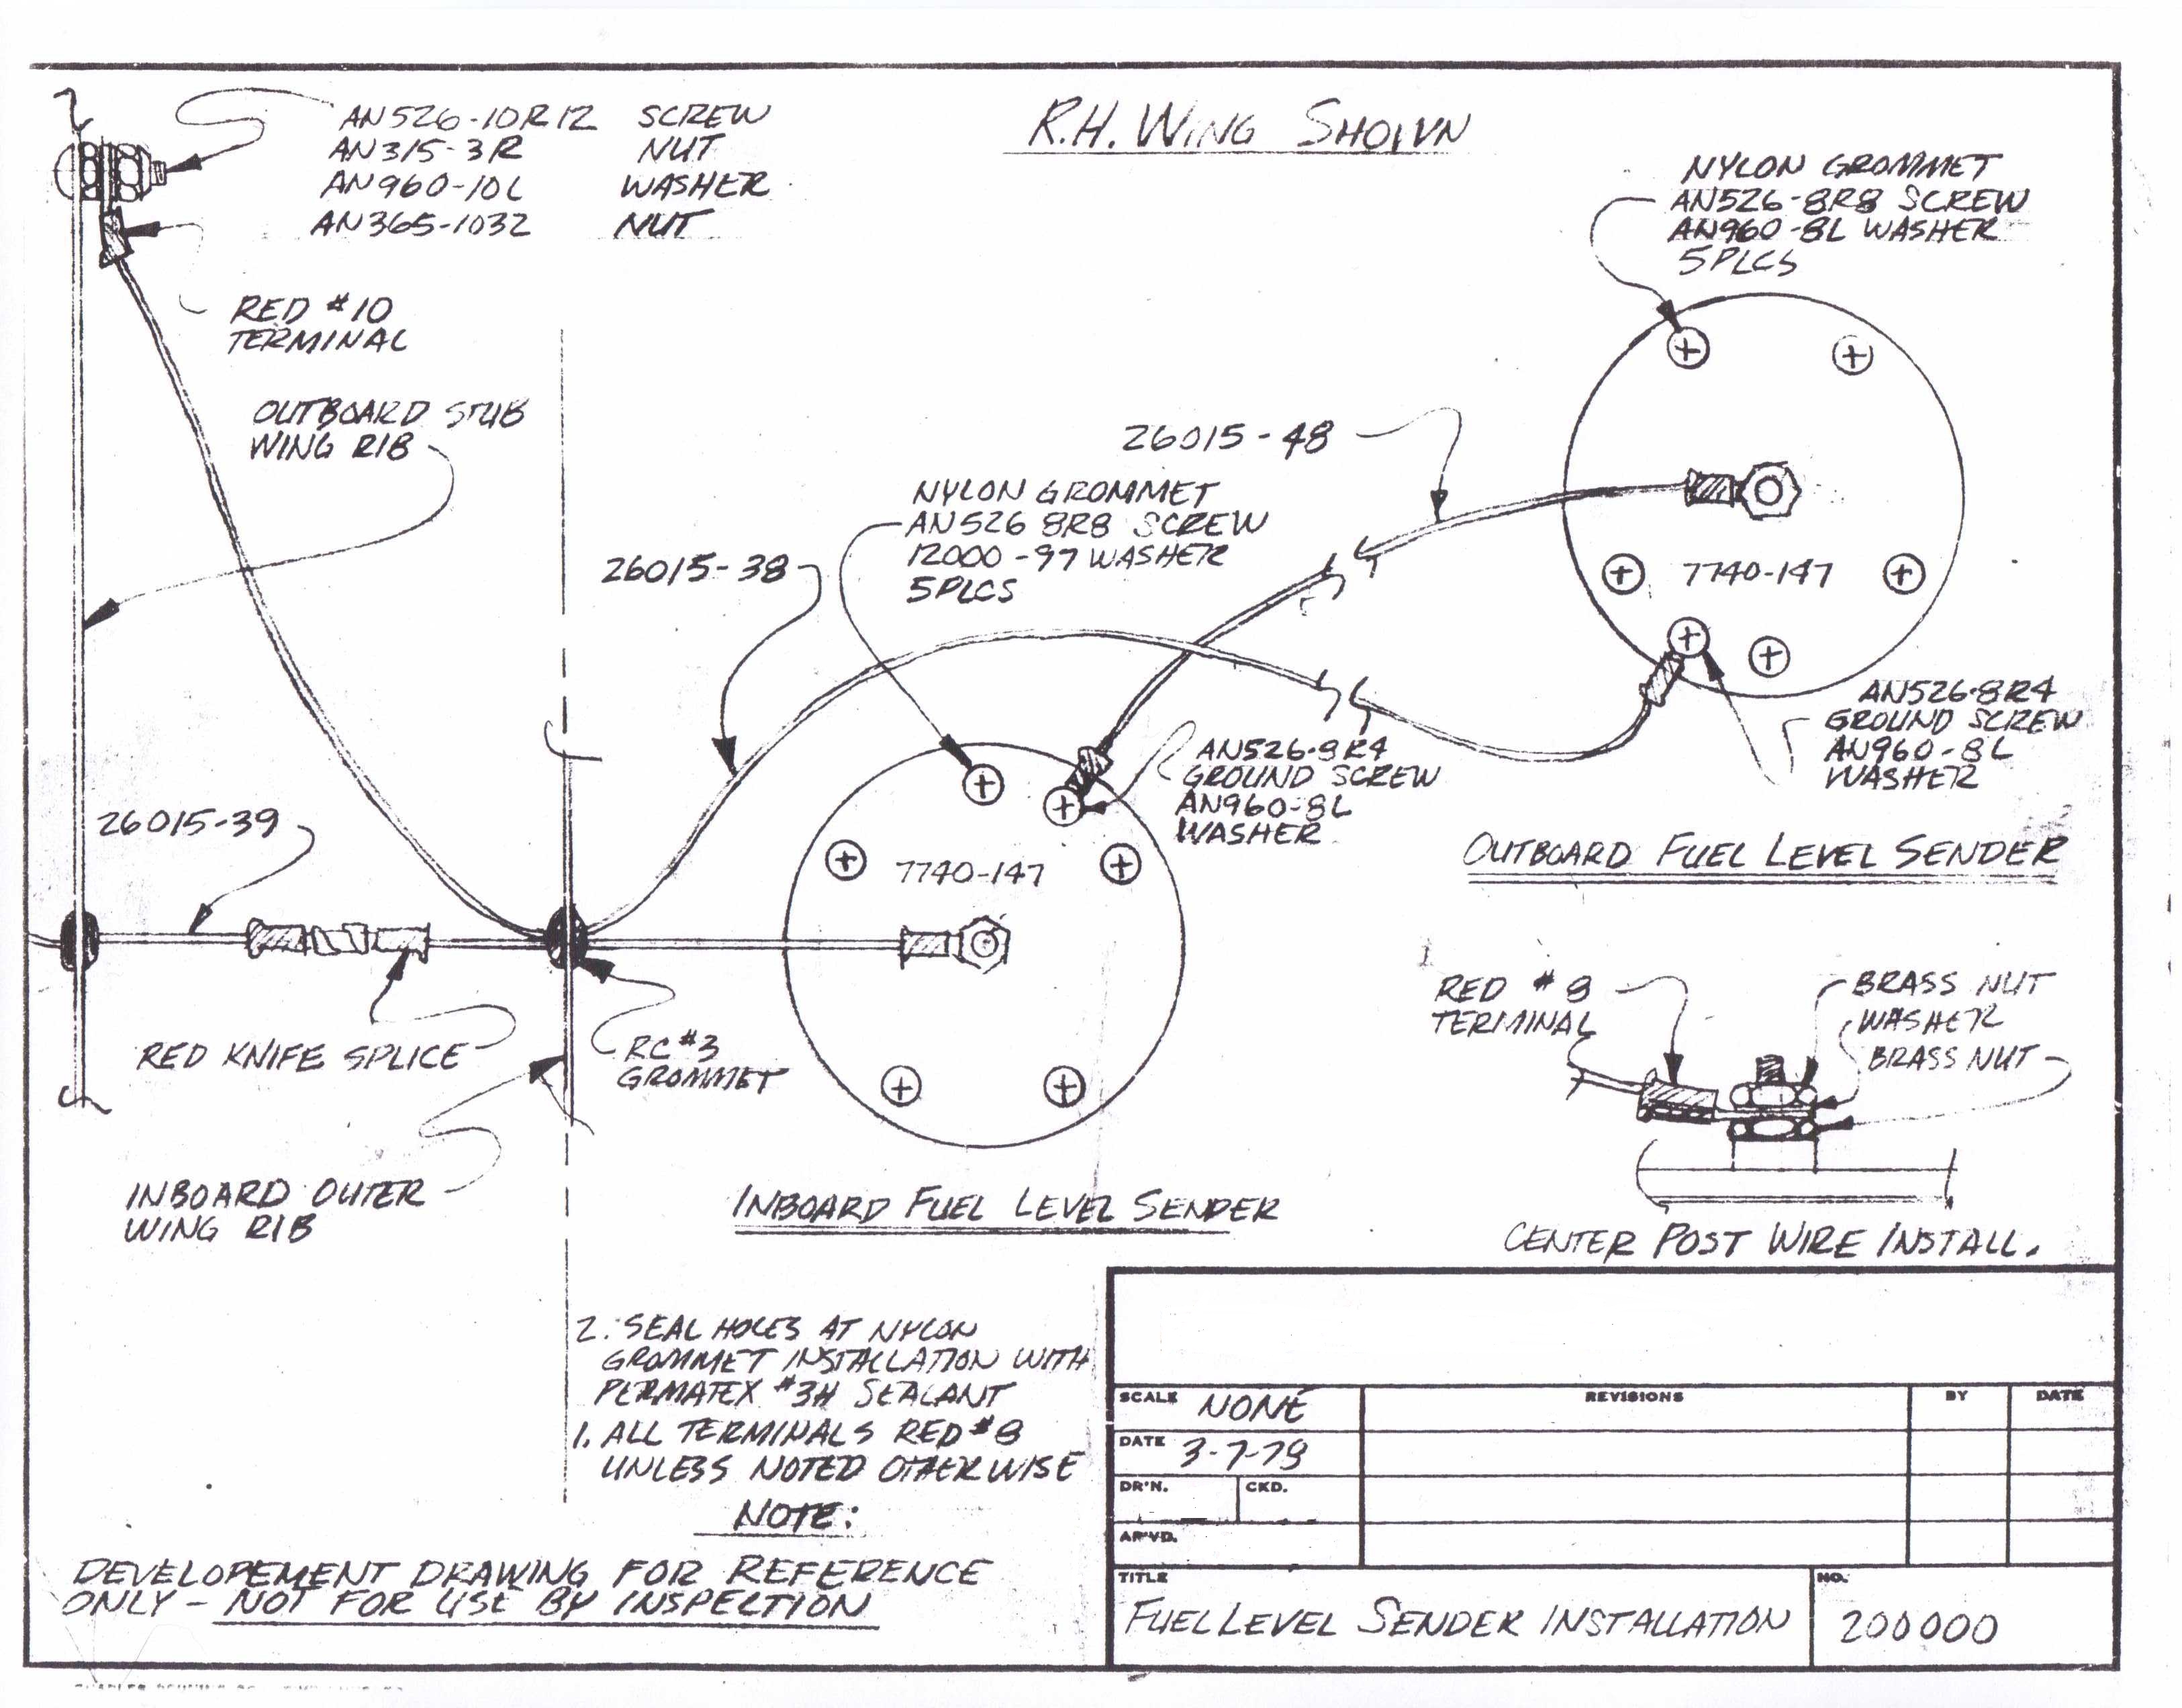 R.H. WING SHOWN
AN526-10R12 SCREW
AN315-3R NUT
AN960-10L WASHER
AN365-1032 NUT
RED #10
TERMINAL
OUTBOARD STUB
WING RIB
NYLON GROMMET
AN526-8R8 SCREW
AN960-8L WASHER
5 PLCS
26015-48
NYLON GROMMET
AN526 8R8 SCREW
12000-97 WASHER
5 PLCS
26015-38
7740-147
AN526-8R4
GROUND SCREW
AN960-8L
WASHER
AN526-8R4
GROUND SCREW
AN960-8L
WASHER
OUTBOARD FUEL LEVEL SENDER
26015-39
7740-147
RED KNIFE SPLICE
RC #3
GROMMET
RED #8
TERMINAL
BRASS NUT
WASHER
BRASS NUT
INBOARD OUTER
WING RIB
INBOARD FUEL LEVEL SENDER
CENTER POST WIRE INSTALL.
2. SEAL HOLES AT NYLON
GROMMET INSTALLATION WITH
PERMATEX #3H SEALANT
1. ALL TERMINALS RED #8
UNLESS NOTED OTHERWISE
NOTE:
DEVELOPEMENT DRAWING FOR REFERENCE
ONLY - NOT FOR USE BY INSPECTION
SCALE NONE REVISIONS BY DATE
DATE 3-7-79
DR'N. CKD.
AP'VD.
TITLE NO.
FUEL LEVEL SENDER INSTALLATION 200000